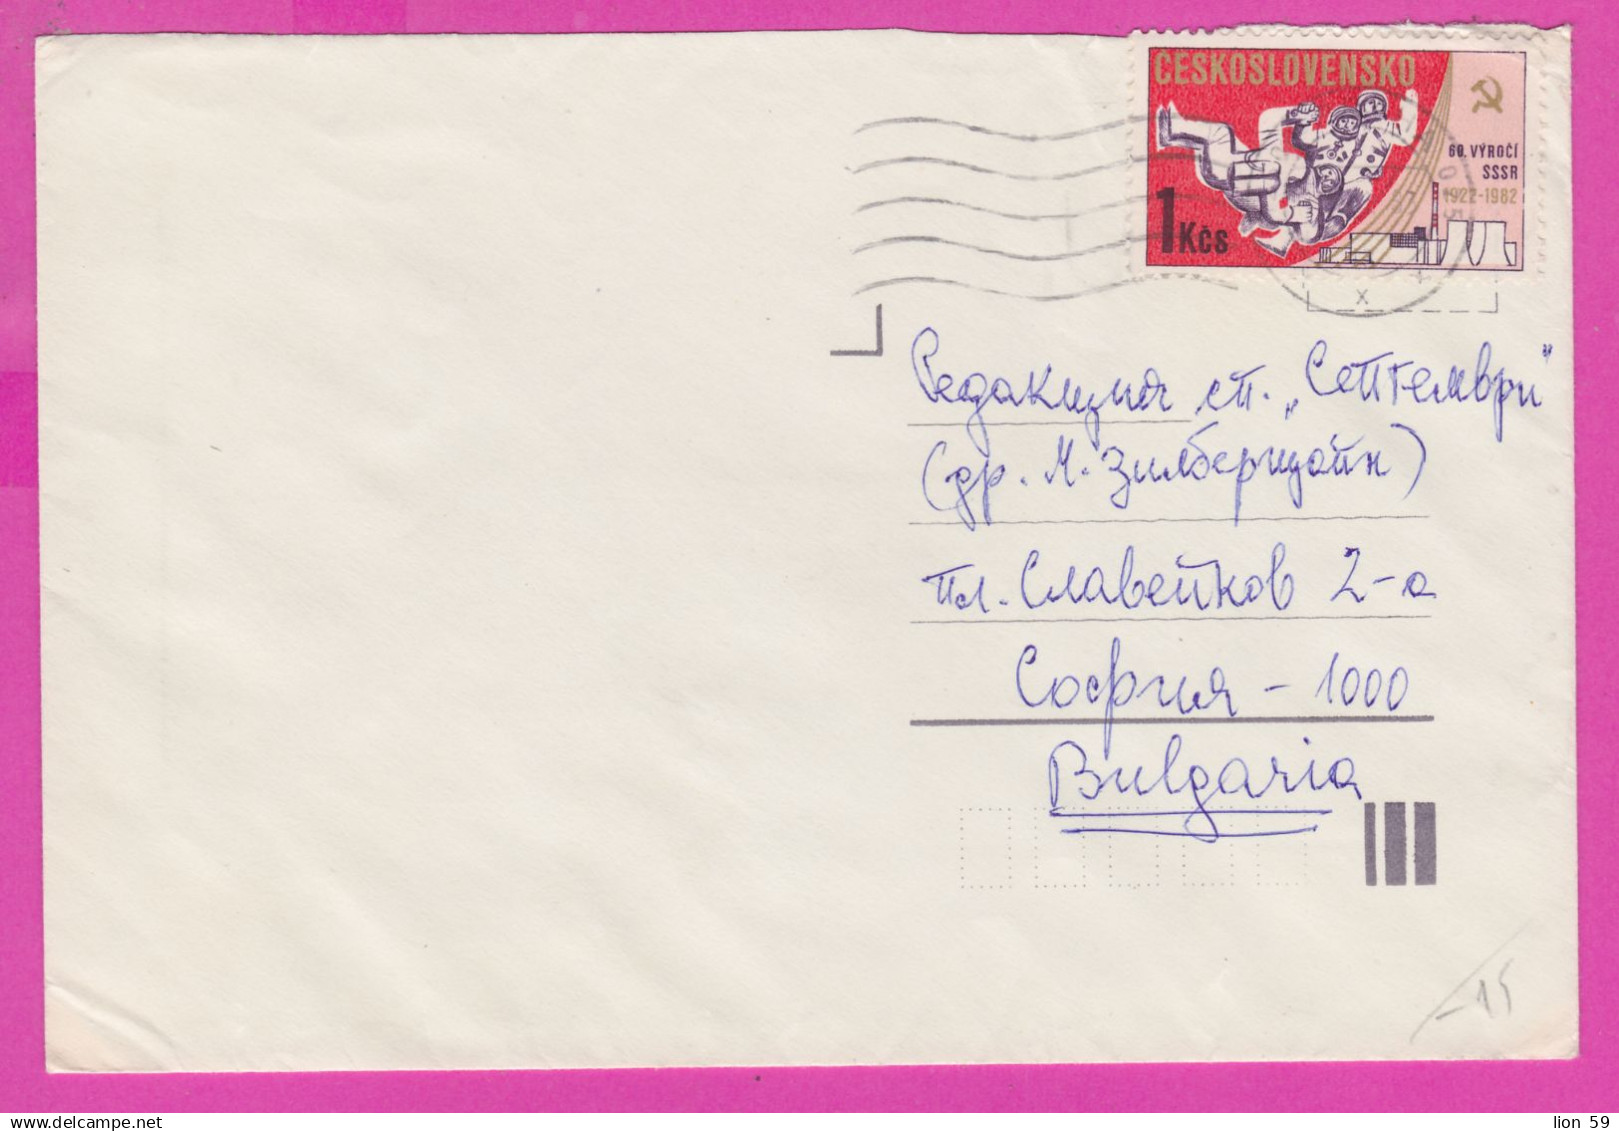 ČESKOSLOVENSKO
60. VÝROČÍ
SSSR
1922-1982
1Kčs
x
Редакция сп. „Септември"
(др. М. Зилберщайн)
пл. Славейков 2-а
София - 1000
Bulgaria
-15
lion 59